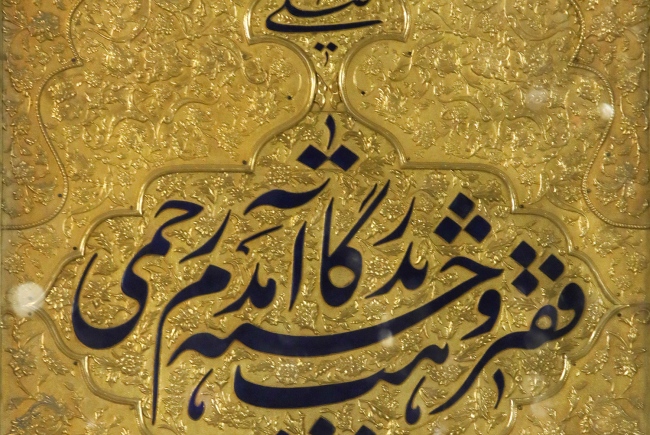 فقیر و خسته بدرگاهت آمدم رحمی